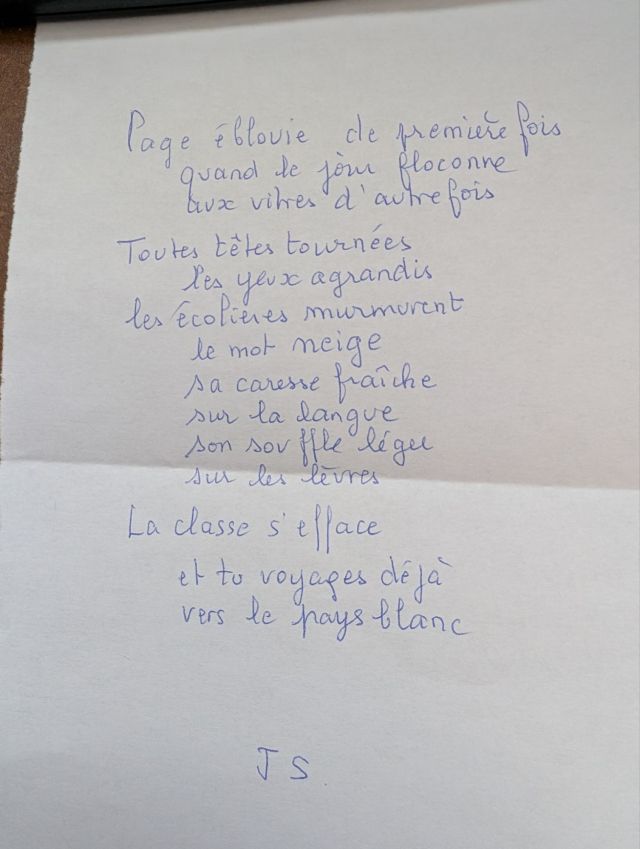 Page éblouie de première fois
quand le jour floconne
aux vitres d'autrefois
Toutes têtes tournées
les yeux agrandis
les écolières murmurent
le mot neige
sa caresse fraîche
sur la langue
son souffle léger
sur les lèvres
La classe s'efface
et tu voyages déjà
vers le pays blanc
J S